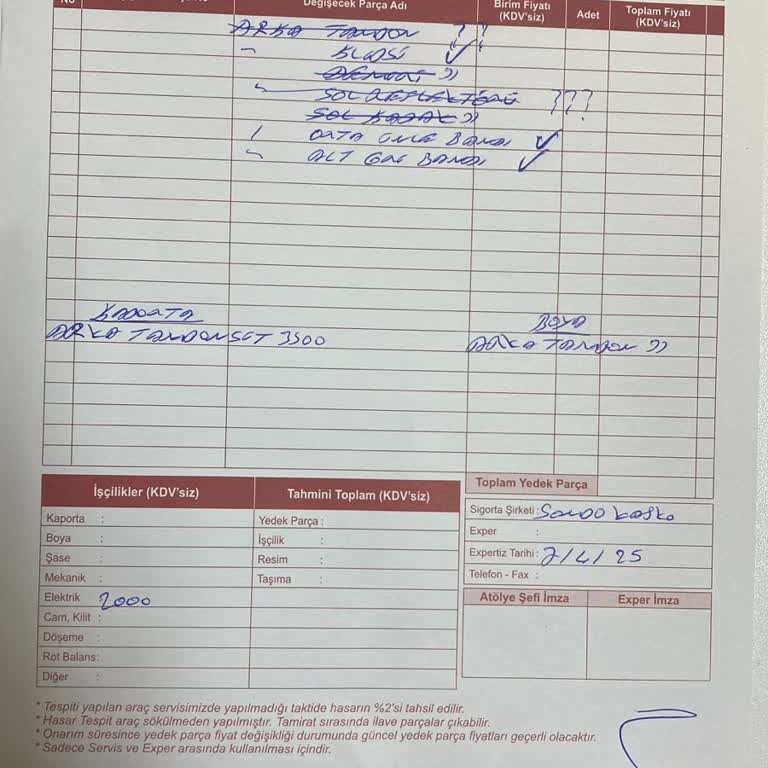 No Değişecek Parça Adı Birim Fiyatı (KDV'siz) Adet Toplam Fiyatı (KDV'siz)
ARKA TAMPON ? ?
KLİPSİ ✓
SOL REFLEKTÖRÜ ???
SOL
ORTA BANDI ✓
ALT BANDI ✓
KAPORTA BOYA
ARKA TAMPON SET 3500 ARKA TAMPON ))
Toplam Yedek Parça
İşçilikler (KDV'siz) Tahmini Toplam (KDV'siz)
Sigorta Şirketi :
Kaporta : Yedek Parça :
Exper :
Boya : İşçilik :
Expertiz Tarihi : 7/4/25
Şase : Resim :
Telefon - Fax :
Mekanik : Taşıma :
Atölye Şefi İmza Exper İmza
Elektrik 2000
Cam, Kilit :
Döşeme :
Rot Balans:
Diğer :
* Tespiti yapılan araç servisimizde yapılmadığı taktide hasarın %2'si tahsil edilir.
* Hasar Tespit araç sökülmeden yapılmıştır. Tamirat sırasında ilave parçalar çıkabilir.
* Onarım süresince yedek parça fiyat değişikliği durumunda güncel yedek parça fiyatları geçerli olacaktır.
* Sadece Servis ve Exper arasında kullanılması içindir.